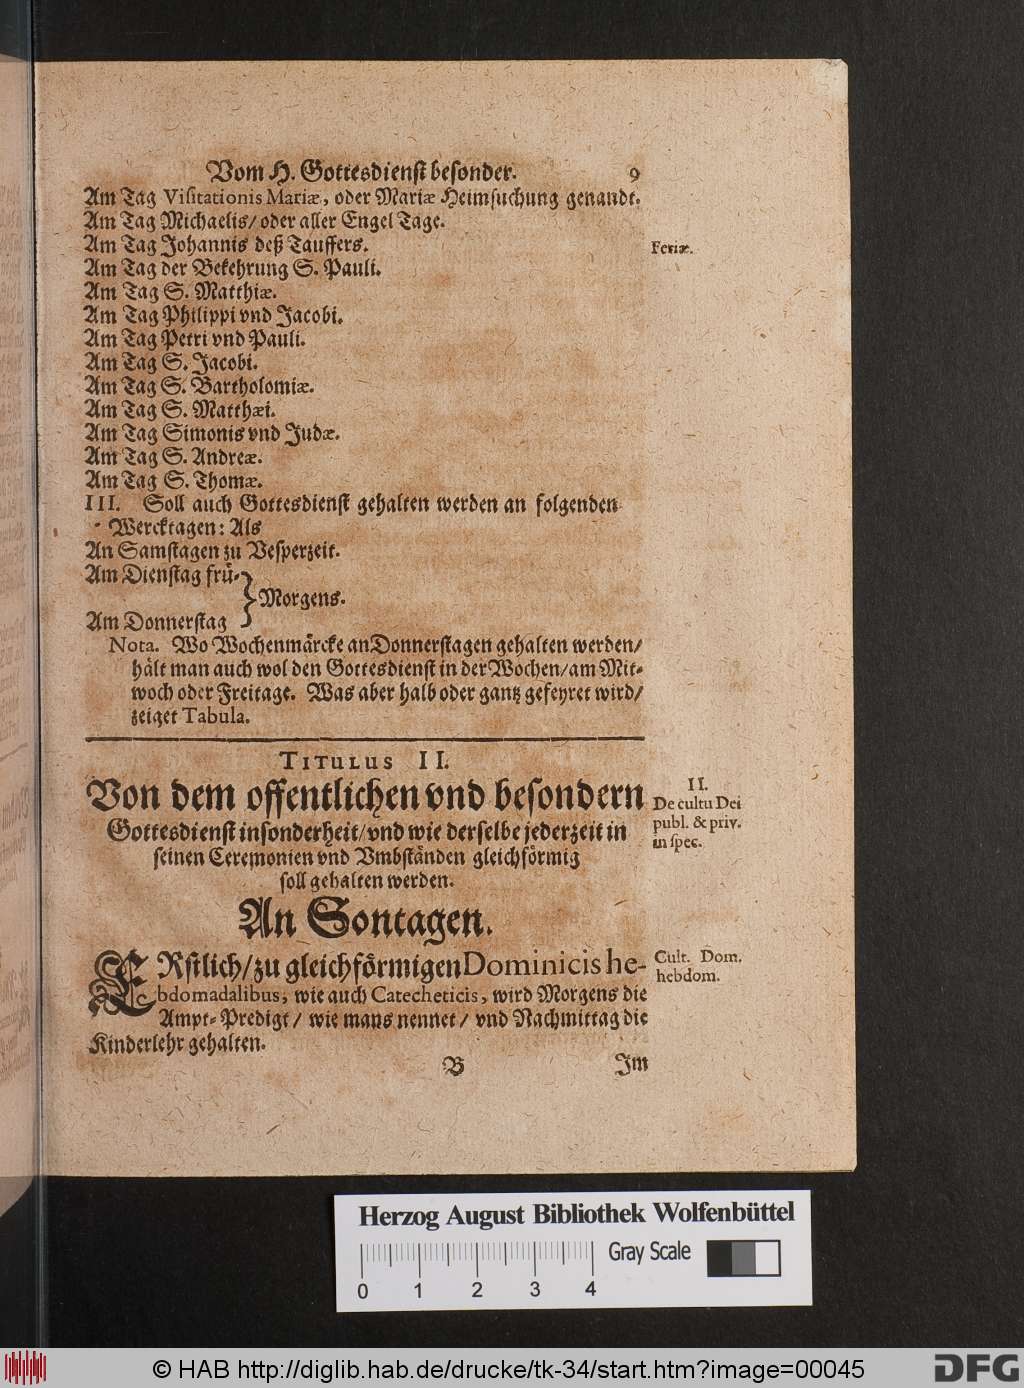 Vom H. Gottesdienst besonder. 9
Am Tag Visitationis Mariæ, oder Mariæ Heimsuchung genandt.
Am Tag Michaelis/ oder aller Engel Tage.
Am Tag Johannis deß Tauffers.
Feriæ.
Am Tag der Bekehrung S. Pauli.
Am Tag S. Matthiæ.
Am Tag Philippi vnd Jacobi.
Am Tag Petri vnd Pauli.
Am Tag S. Jacobi.
Am Tag S. Bartholomiæ.
Am Tag S. Matthæi.
Am Tag Simonis vnd Judæ.
Am Tag S. Andreæ.
Am Tag S. Thomæ.
III. Soll auch Gottesdienst gehalten werden an folgenden
Wercktagen: Als
An Samstagen zu Vesperzeit.
Am Dienstag frü-
} Morgens.
Am Donnerstag
Nota. Wo Wochenmärcke an Donnerstagen gehalten werden/
hält man auch wol den Gottesdienst in der Wochen/ am Mit-
woch oder Freitage. Was aber halb oder gantz gefeyret wird/
zeiget Tabula.
TITULUS II.
Von dem offentlichen vnd besondern
Gottesdienst insonderheit/ vnd wie derselbe jederzeit in
seinen Ceremonien vnd Vmbständen gleichförmig
soll gehalten werden.
II.
De cultu Dei
publ. & priv.
in spec.
An Sontagen.
ERstlich/ zu gleichförmigen Dominicis he-
bdomadalibus, wie auch Catecheticis, wird Morgens die
Ampt-Predigt/ wie mans nennet/ vnd Nachmittag die
Kinderlehr gehalten.
Cult. Dom.
hebdom.
B Im
Herzog August Bibliothek Wolfenbüttel
Gray Scale
0 1 2 3 4
© HAB http://diglib.hab.de/drucke/tk-34/start.htm?image=00045
DFG